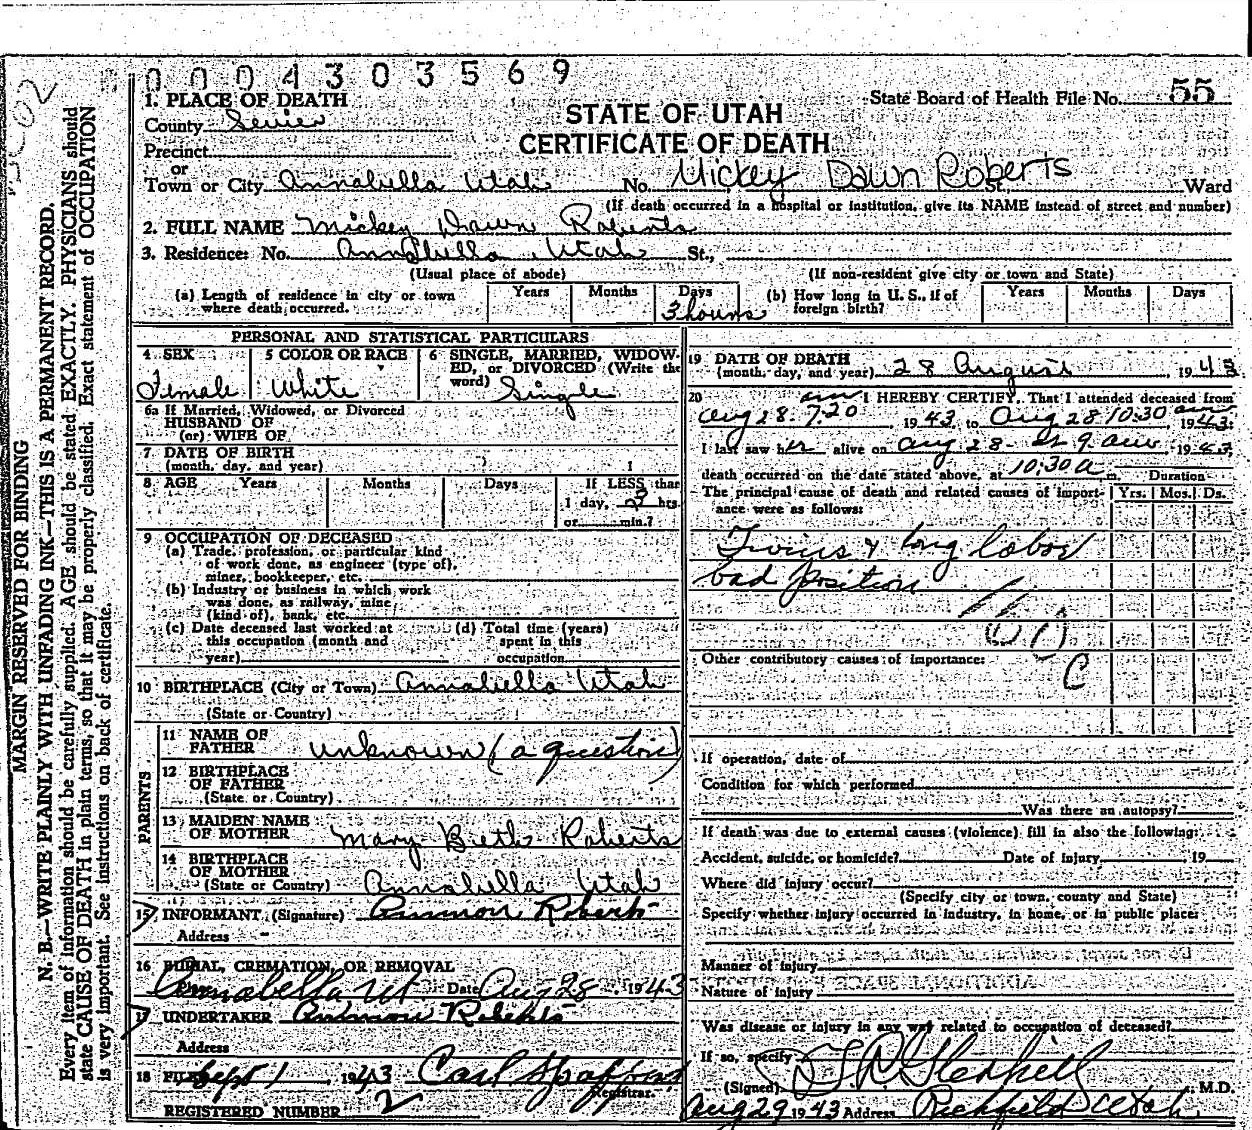 0 0 0 4 3 0 3 5 6 9
State Board of Health File No. 55
STATE OF UTAH
CERTIFICATE OF DEATH
1. PLACE OF DEATH
County Sevier
Precinct
or
Town or City Annabella Utah No. Mickey Dawn Roberts St., Ward
(If death occurred in a hospital or institution, give its NAME instead of street and number)
2. FULL NAME Mickey Dawn Roberts
3. Residence: No. Annabella Utah St.,
(Usual place of abode) (If non-resident give city or town and State)
(a) Length of residence in city or town where death occurred. Years Months Days 3 hours
(b) How long in U. S., if of foreign birth? Years Months Days
PERSONAL AND STATISTICAL PARTICULARS
4 SEX Female
5 COLOR OR RACE White
6 SINGLE, MARRIED, WIDOWED, or DIVORCED (Write the word) Single
6a If Married, Widowed, or Divorced
HUSBAND OF
(or) WIFE OF
7 DATE OF BIRTH
(month, day, and year)
8 AGE Years Months Days If LESS than
1 day, 3 hrs.
or min.?
9 OCCUPATION OF DECEASED
(a) Trade, profession, or particular kind
of work done, as engineer (type of),
miner, bookkeeper, etc.
(b) Industry or business in which work
was done, as railway, mine
(kind of), bank, etc.
(c) Date deceased last worked at
this occupation (month and
year)
(d) Total time (years)
spent in this
occupation
10 BIRTHPLACE (City or Town) Annabella Utah
(State or Country)
PARENTS
11 NAME OF
FATHER unknown (a question)
12 BIRTHPLACE
OF FATHER
(State or Country)
13 MAIDEN NAME
OF MOTHER Mary Beth Roberts
14 BIRTHPLACE
OF MOTHER
(State or Country) Annabella Utah
15 INFORMANT (Signature) Ammon Roberts
Address
16 BURIAL, CREMATION, OR REMOVAL
Annabella, Ut Date Aug 28 1943
17 UNDERTAKER Ammon Roberts
Address
18 FILED Sept 1, 1943 Carl
Registrar.
REGISTERED NUMBER 2
19 DATE OF DEATH
(month, day, and year) 28 August, 1943
20 I HEREBY CERTIFY, That I attended deceased from
Aug 28 7.20 am, 1943, to Aug 28 10:30 am, 1943.
I last saw her alive on Aug 28 - at 9 am, 1943,
death occurred on the date stated above, at 10:30 a m. Duration
The principal cause of death and related causes of importance were as follows: Yrs. Mos. Ds.
Twins & long labor
bad position
Other contributory causes of importance:
C
If operation, date of
Condition for which performed
Was there an autopsy?
If death was due to external causes (violence) fill in also the following:
Accident, suicide, or homicide? Date of injury, 19
Where did injury occur?
(Specify city or town, county and State)
Specify whether injury occurred in industry, in home, or in public place:
Manner of injury
Nature of injury
Was disease or injury in any way related to occupation of deceased?
If so, specify
(Signed) M.D.
Aug 29 1943 Address Richfield Utah
MARGIN RESERVED FOR BINDING
N. B.—WRITE PLAINLY WITH UNFADING INK—THIS IS A PERMANENT RECORD.
Every item of information should be carefully supplied. AGE should be stated EXACTLY. PHYSICIANS should
state CAUSE OF DEATH in plain terms, so that it may be properly classified. Exact statement of OCCUPATION
is very important. See instructions on back of certificate.